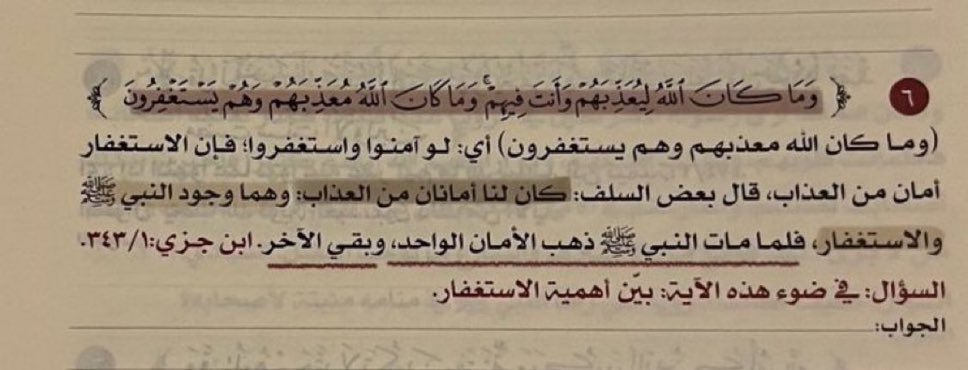 ٦ ﴿ وَمَا كَانَ ٱللَّهُ لِيُعَذِّبَهُمْ وَأَنتَ فِيهِمْ ۚ وَمَا كَانَ ٱللَّهُ مُعَذِّبَهُمْ وَهُمْ يَسْتَغْفِرُونَ ﴾
(وما كان الله معذبهم وهم يستغفرون) أي: لو آمنوا واستغفروا؛ فإن الاستغفار
أمان من العذاب، قال بعض السلف: كان لنا أمانان من العذاب: وهما وجود النبي ﷺ
والاستغفار، فلما مات النبي ﷺ ذهب الأمان الواحد، وبقي الآخر. ابن جزي:١/٣٤٣.
السؤال: في ضوء هذه الآية: بيّن أهمية الاستغفار.
الجواب: